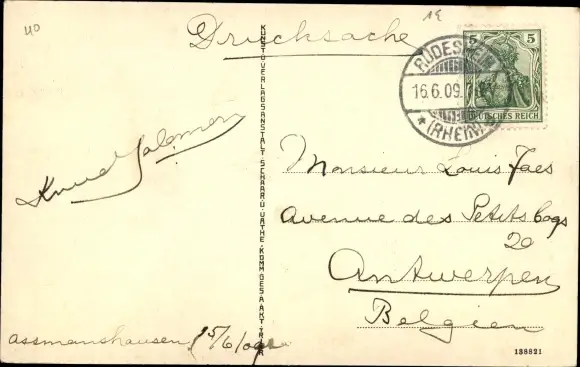 40
Drucksache
RÜDESHEIM
16.6.09.
* (RHEIN)
5 5
DEUTSCHES REICH
Knud Salomon
KUNSTVERLAGSANSTALT SCHAAR U. DATHE, KOMM. GES. A. AKT., TRIER
Monsieur Louis Faes
Avenue des Petits Coqs
20
Antwerpen
Belgien
assmanshausen 15/6/09
138821